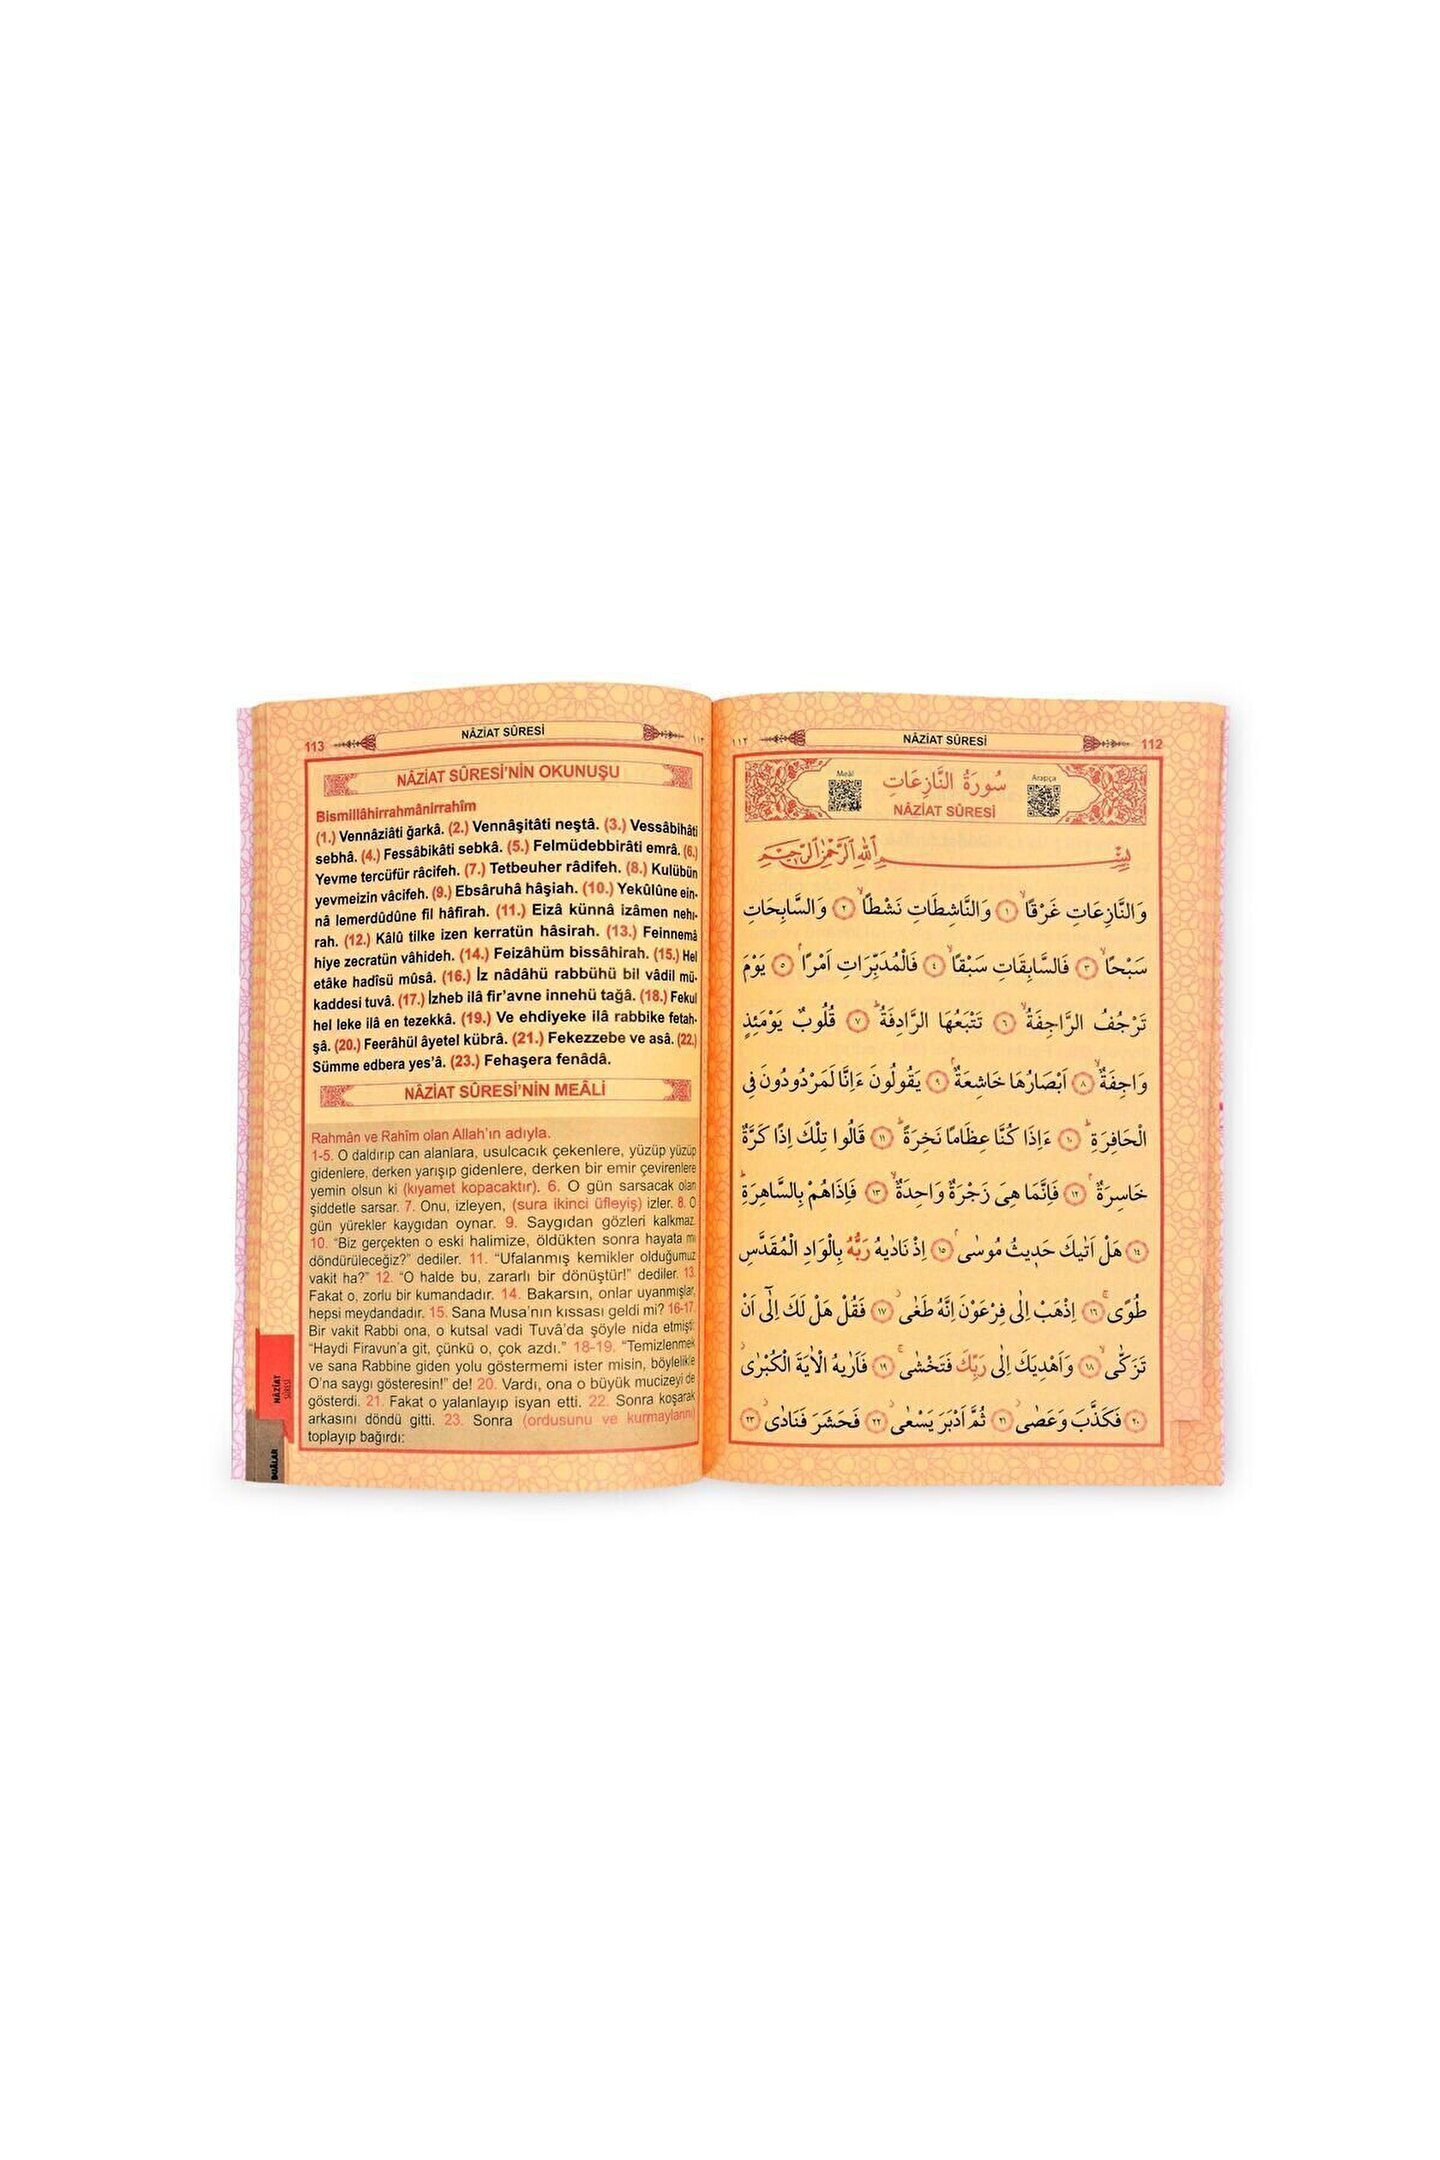 ١١٢ NÂZİAT SÛRESİ 112
Meâl
Arapça
سُورَةُ النَّازِعَاتِ
NÂZİAT SÛRESİ
بِسْمِ اللّٰهِ الرَّحْمٰنِ الرَّحِيمِ
وَالنَّازِعَاتِ غَرْقًاۙ ﴿١﴾ وَالنَّاشِطَاتِ نَشْطًاۙ ﴿٢﴾ وَالسَّابِحَاتِ
سَبْحًاۙ ﴿٣﴾ فَالسَّابِقَاتِ سَبْقًاۙ ﴿٤﴾ فَالْمُدَبِّرَاتِ اَمْرًاۢ ﴿٥﴾ يَوْمَ
تَرْجُفُ الرَّاجِفَةُۙ ﴿٦﴾ تَتْبَعُهَا الرَّادِفَةُۜ ﴿٧﴾ قُلُوبٌ يَوْمَئِذٍ
وَاجِفَةٌۙ ﴿٨﴾ اَبْصَارُهَا خَاشِعَةٌۢ ﴿٩﴾ يَقُولُونَ ءَاِنَّا لَمَرْدُودُونَ فِى
الْحَافِرَةِۜ ﴿١٠﴾ ءَاِذَا كُنَّا عِظَامًا نَخِرَةًۜ ﴿١١﴾ قَالُوا تِلْكَ اِذًا كَرَّةٌ
خَاسِرَةٌۢ ﴿١٢﴾ فَاِنَّمَا هِىَ زَجْرَةٌ وَاحِدَةٌۙ ﴿١٣﴾ فَاِذَاهُمْ بِالسَّاهِرَةِۜ
﴿١٤﴾ هَلْ اَتٰيكَ حَدِيثُ مُوسٰىۢ ﴿١٥﴾ اِذْ نَادٰيهُ رَبُّهُ بِالْوَادِ الْمُقَدَّسِ
طُوًىۚ ﴿١٦﴾ اِذْهَبْ اِلٰى فِرْعَوْنَ اِنَّهُ طَغٰىۘ ﴿١٧﴾ فَقُلْ هَلْ لَكَ اِلٰٓى اَنْ
تَزَكّٰىۙ ﴿١٨﴾ وَاَهْدِيَكَ اِلٰى رَبِّكَ فَتَخْشٰىۚ ﴿١٩﴾ فَاَرٰيهُ الْاٰيَةَ الْكُبْرٰىۘ
﴿٢٠﴾ فَكَذَّبَ وَعَصٰىۘ ﴿٢١﴾ ثُمَّ اَدْبَرَ يَسْعٰىۘ ﴿٢٢﴾ فَحَشَرَ فَنَادٰىۘ ﴿٢٣﴾
113 NÂZİAT SÛRESİ ١١٣
NÂZİAT SÛRESİ'NİN OKUNUŞU
Bismillâhirrahmânirrahîm
(1.) Vennâziâti ğarkâ. (2.) Vennâşitâti neştâ. (3.) Vessâbihâti
sebhâ. (4.) Fessâbikâti sebkâ. (5.) Felmüdebbirâti emrâ. (6.)
Yevme tercüfür râcifeh. (7.) Tetbeuher râdifeh. (8.) Kulûbün
yevmeizin vâcifeh. (9.) Ebsâruhâ hâşiah. (10.) Yekûlûne ein-
nâ lemerdûdûne fil hâfirah. (11.) Eizâ künnâ izâmen nehı-
rah. (12.) Kâlû tilke izen kerratün hâsirah. (13.) Feinnemâ
hiye zecratün vâhideh. (14.) Feizâhüm bissâhirah. (15.) Hel
etâke hadîsü mûsâ. (16.) İz nâdâhü rabbühü bil vâdil mü-
kaddesi tuvâ. (17.) İzheb ilâ fir'avne innehü tağâ. (18.) Fekul
hel leke ilâ en tezekkâ. (19.) Ve ehdiyeke ilâ rabbike fetah-
şâ. (20.) Feerâhül âyetel kübrâ. (21.) Fekezzebe ve asâ. (22.)
Sümme edbera yes'â. (23.) Fehaşera fenâdâ.
NÂZİAT SÛRESİ'NİN MEÂLİ
Rahmân ve Rahîm olan Allah'ın adıyla.
1-5. O daldırıp can alanlara, usulcacık çekenlere, yüzüp yüzüp
gidenlere, derken yarışıp gidenlere, derken bir emir çevirenlere
yemin olsun ki (kıyamet kopacaktır). 6. O gün sarsacak olan
şiddetle sarsar. 7. Onu, izleyen, (sura ikinci üfleyiş) izler. 8. O
gün yürekler kaygıdan oynar. 9. Saygıdan gözleri kalkmaz.
10. "Biz gerçekten o eski halimize, öldükten sonra hayata mı
döndürüleceğiz?" dediler. 11. "Ufalanmış kemikler olduğumuz
vakit ha?" 12. "O halde bu, zararlı bir dönüştür!" dediler. 13.
Fakat o, zorlu bir kumandadır. 14. Bakarsın, onlar uyanmışlar,
hepsi meydandadır. 15. Sana Musa'nın kıssası geldi mi? 16-17.
Bir vakit Rabbi ona, o kutsal vadi Tuvâ'da şöyle nida etmişti:
"Haydi Firavun'a git, çünkü o, çok azdı." 18-19. "Temizlenmek
ve sana Rabbine giden yolu göstermemi ister misin, böylelikle
O'na saygı gösteresin!" de! 20. Vardı, ona o büyük mucizeyi de
gösterdi. 21. Fakat o yalanlayıp isyan etti. 22. Sonra koşarak
arkasını döndü gitti. 23. Sonra (ordusunu ve kurmaylarını)
toplayıp bağırdı:
NÂZİAT
SÛRESİ
DUÂLAR